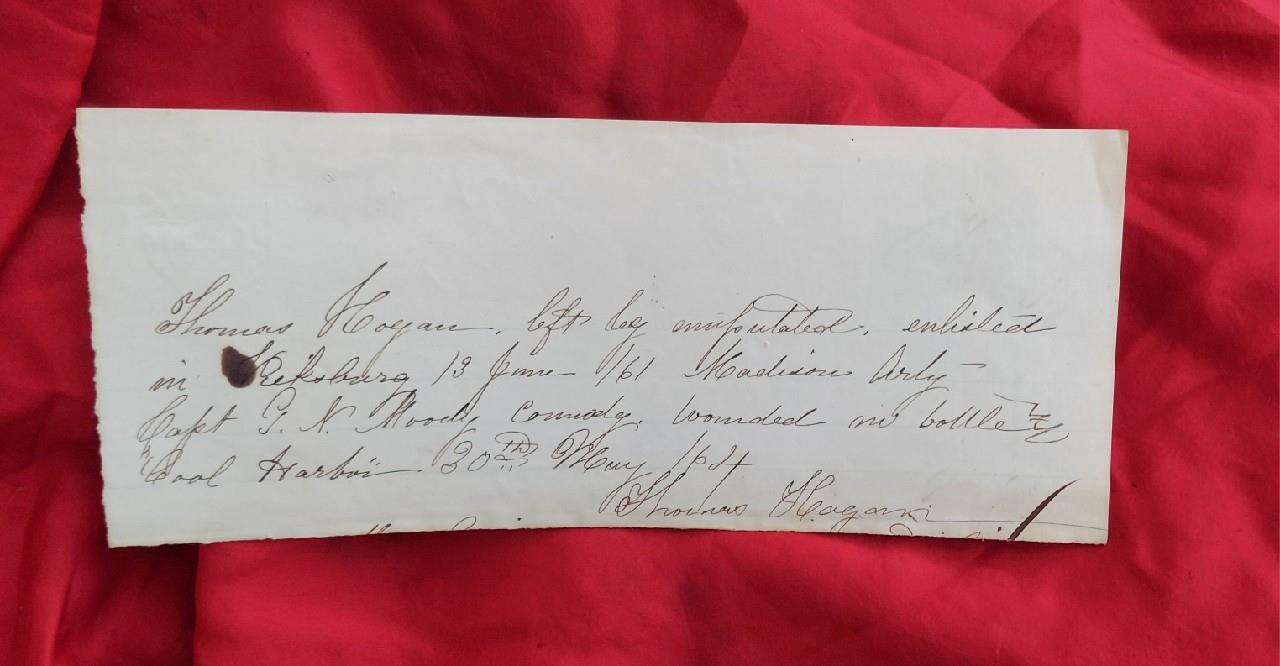 Thomas Hogan, left leg amputated, enlisted
in Vicksburg 13 June /61 Madison Arty
Capt G. N. Moody comndg. wounded in battle
Cool Harbor 30th May /64
Thomas Hogan